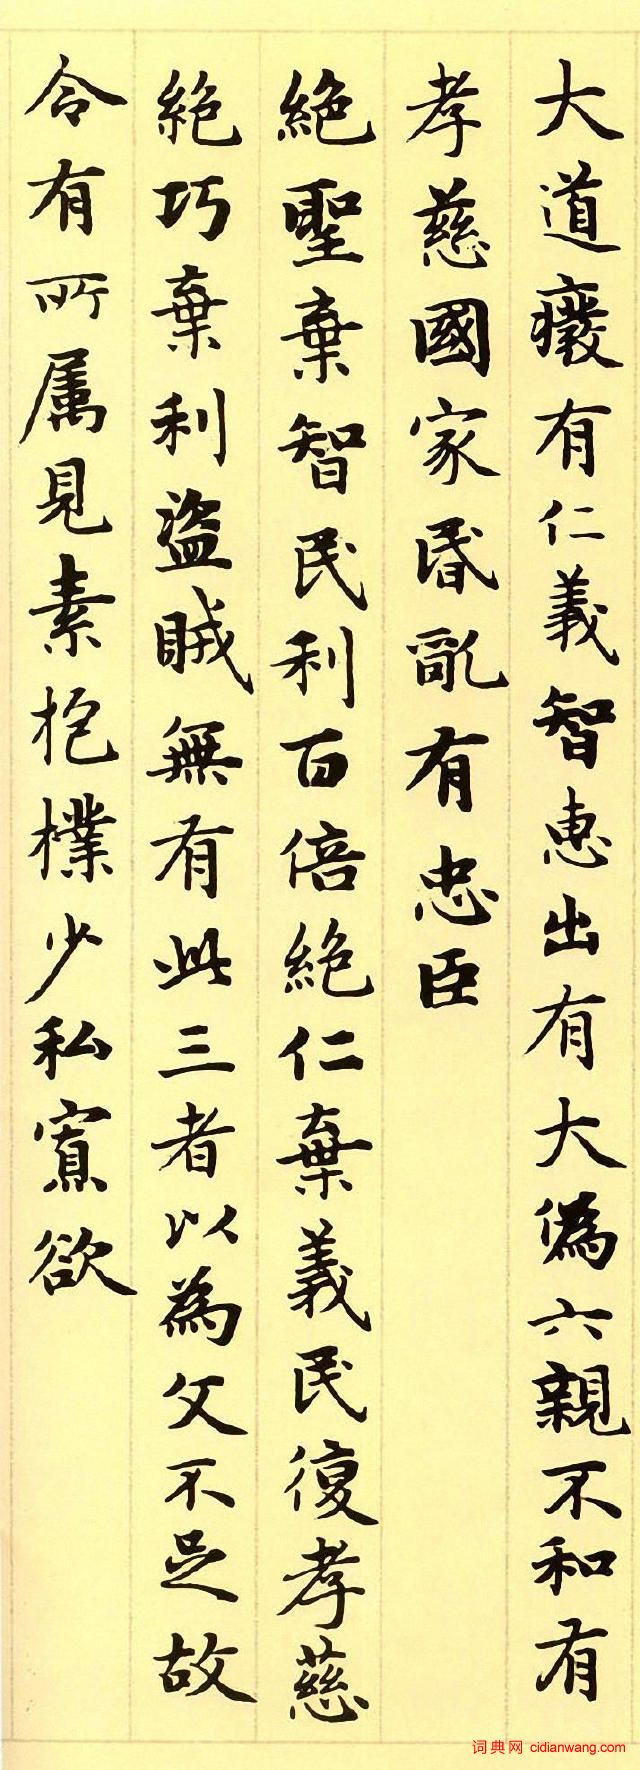 大道癈有仁義智惠出有大偽六親不和有
孝慈國家昬亂有忠臣
絕聖棄智民利百倍絕仁棄義民復孝慈
絕巧棄利盜賊無有此三者以為文不足故
令有所属見素抱樸少私寡欲
词典网 cidianwang.com